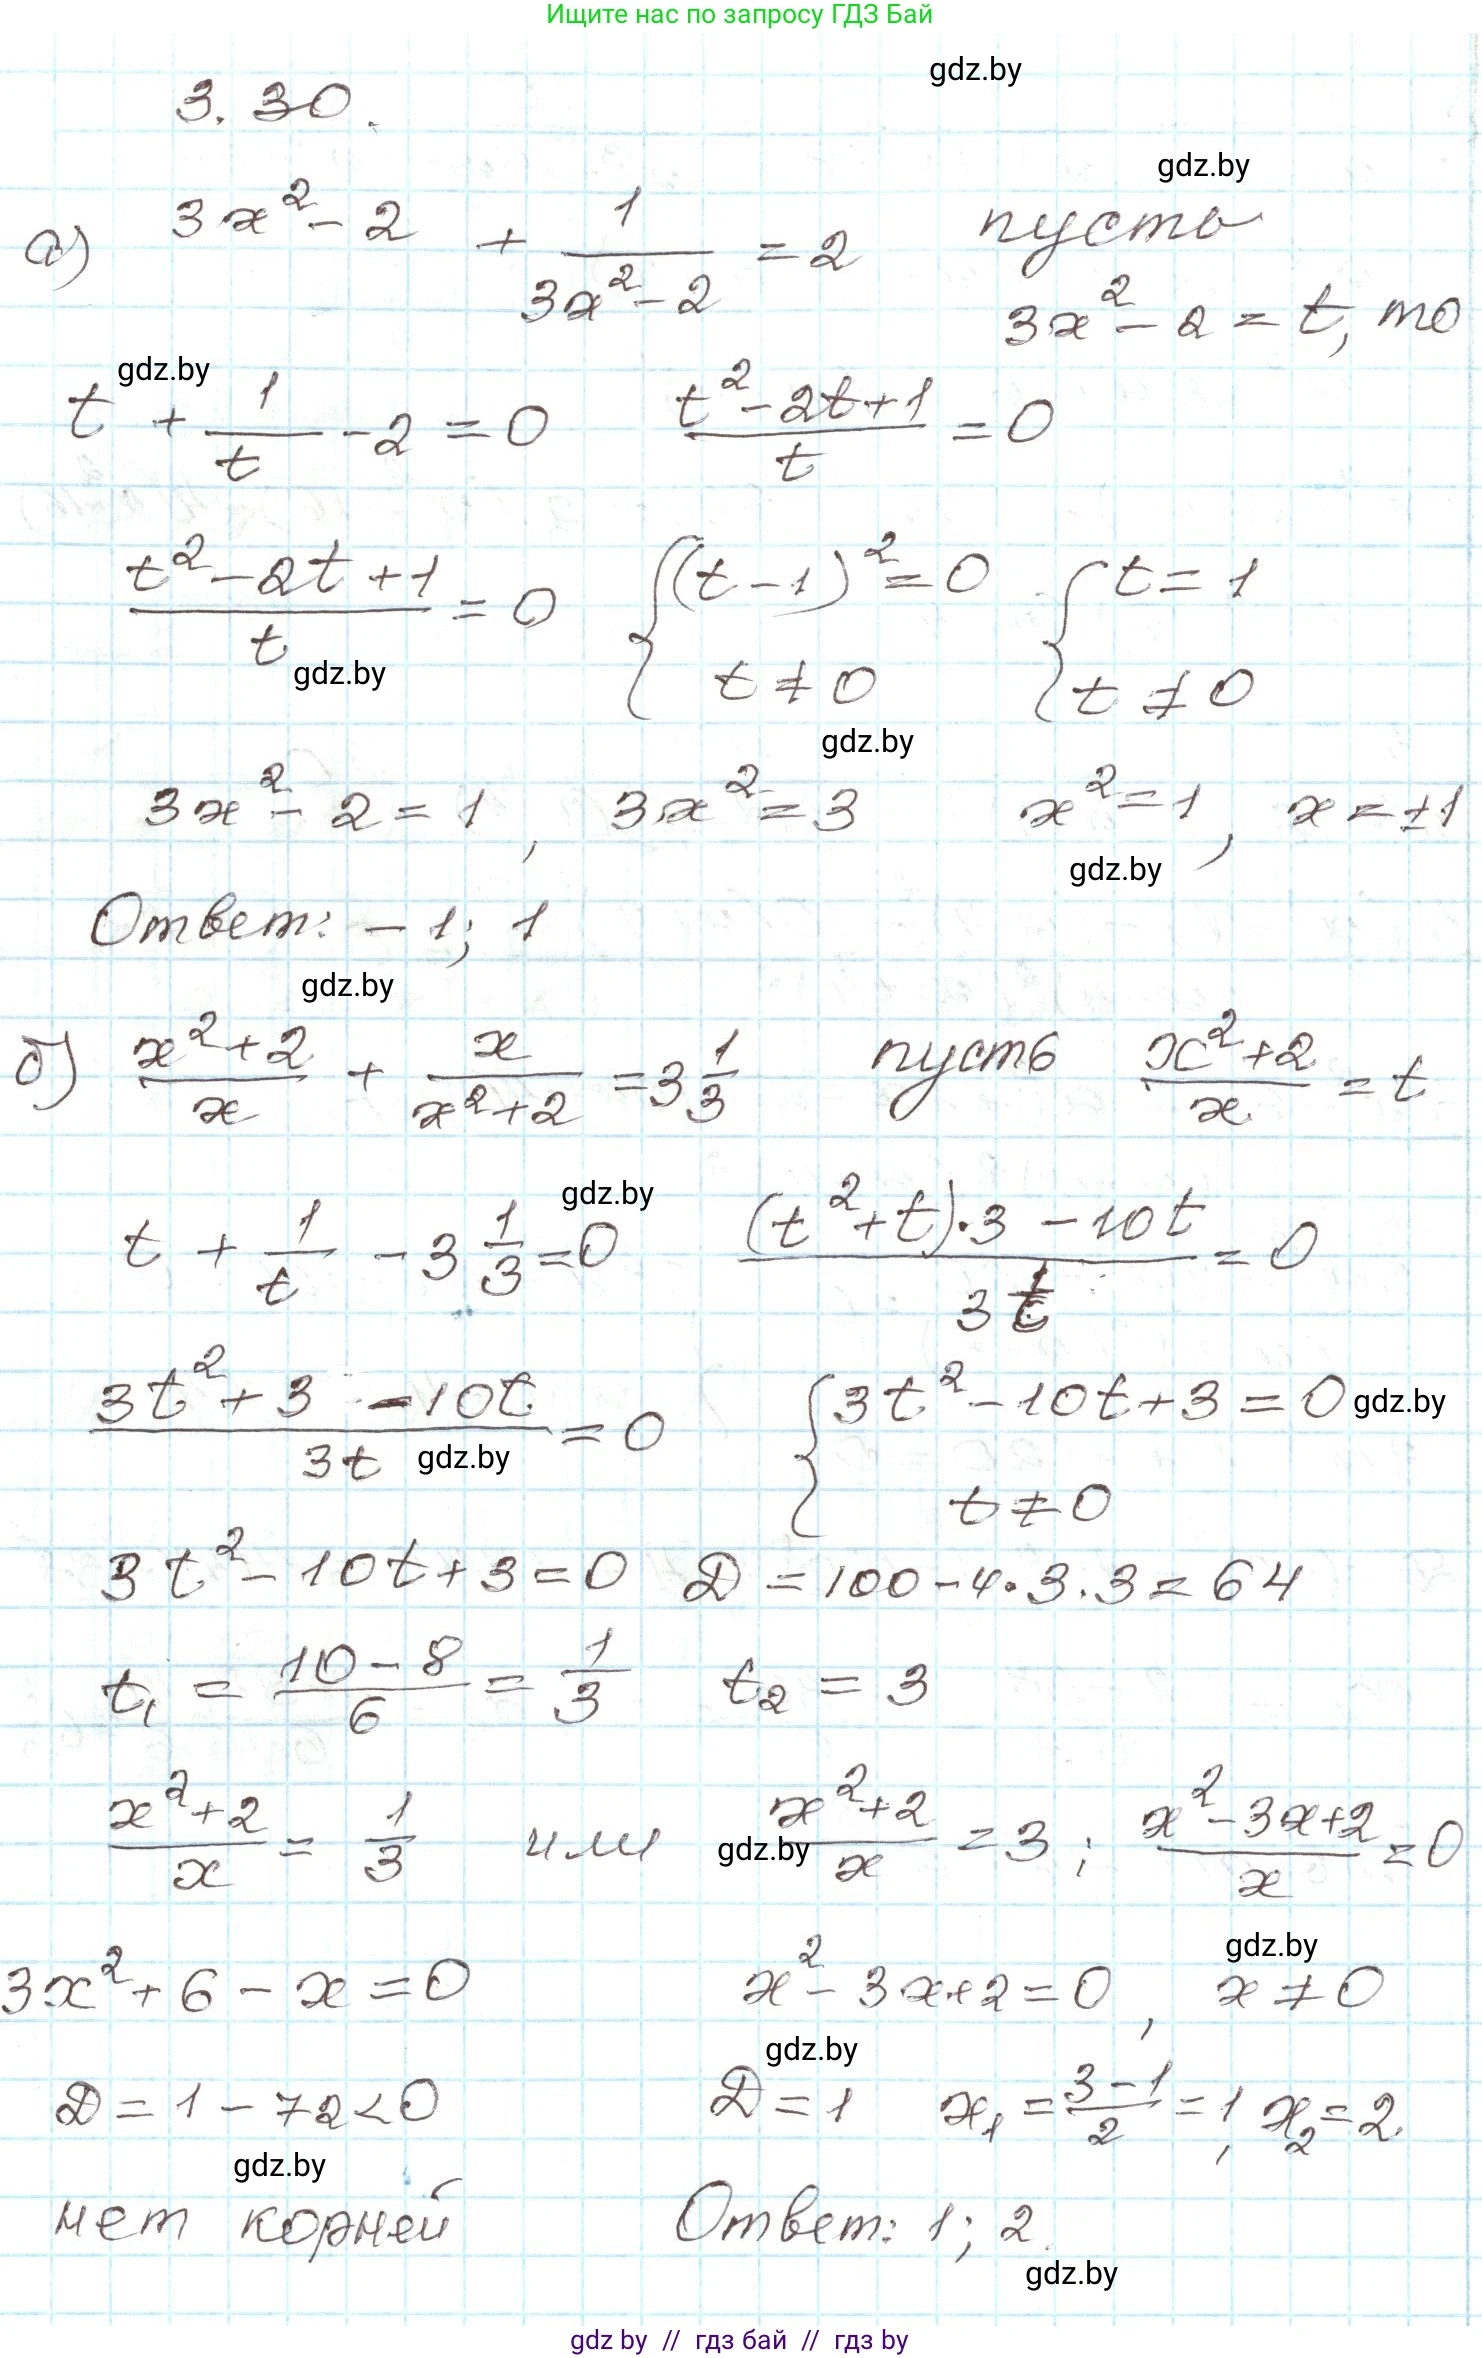 Ищите нас по запросу ГДЗ Бай
gdz.by
3.30.
gdz.by
а) 3x² - 2 + 1/(3x² - 2) = 2 пусть
3x² - 2 = t, то
gdz.by
t + 1/t - 2 = 0 (t² - 2t + 1)/t = 0
(t² - 2t + 1)/t = 0 {(t - 1)² = 0 {t = 1
t ≠ 0 t ≠ 0
gdz.by
gdz.by
3x² - 2 = 1, 3x² = 3 x² = 1, x = ±1
gdz.by
Ответ: - 1; 1
gdz.by
б) (x² + 2)/x + x/(x² + 2) = 3 1/3 пусть (x² + 2)/x = t
gdz.by
t + 1/t - 3 1/3 = 0 ((t² + t)·3 - 10t)/(3t) = 0
(3t² + 3 - 10t)/(3t) = 0 {3t² - 10t + 3 = 0 gdz.by
gdz.by
t ≠ 0
3t² - 10t + 3 = 0 D = 100 - 4·3·3 = 64
t₁ = (10 - 8)/6 = 1/3 t₂ = 3
(x² + 2)/x = 1/3 или (x² + 2)/x = 3; (x² - 3x + 2)/x = 0
gdz.by
gdz.by
3x² + 6 - x = 0 x² - 3x + 2 = 0, x ≠ 0
gdz.by
D = 1 - 72 < 0 D = 1 x₁ = (3 - 1)/2 = 1, x₂ = 2.
gdz.by
нет корней Ответ: 1; 2.
gdz.by
gdz by // гдз бай // гдз by